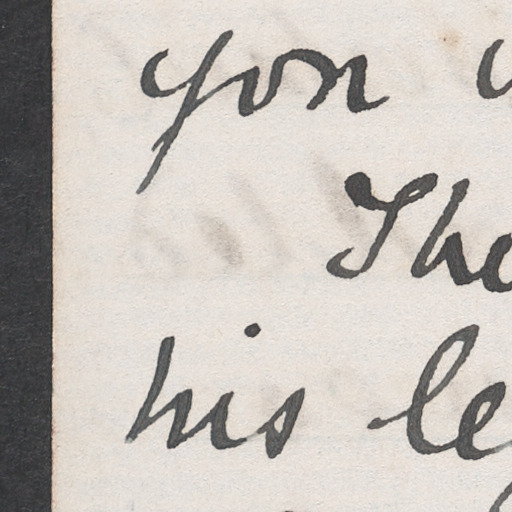 you
The
his le